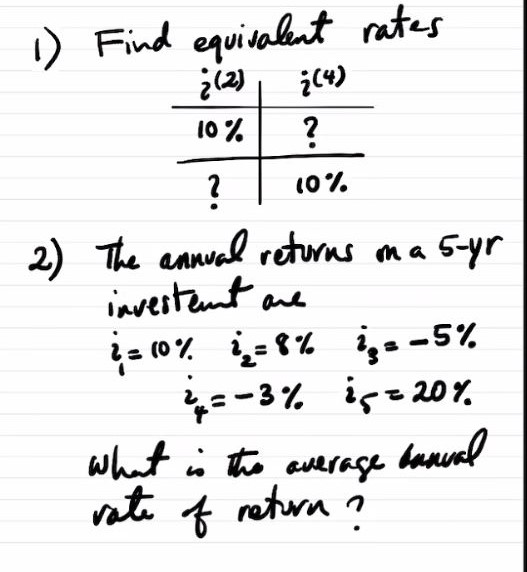 1) Find equivalent rates
i^(2) i^(4)
10% ?
? 10%
2) The annual returns on a 5-yr
investemt are
i₁ = 10% i₂ = 8% i₃ = -5%
i₄ = -3% i₅ = 20%
What is the average annual
rate of return?